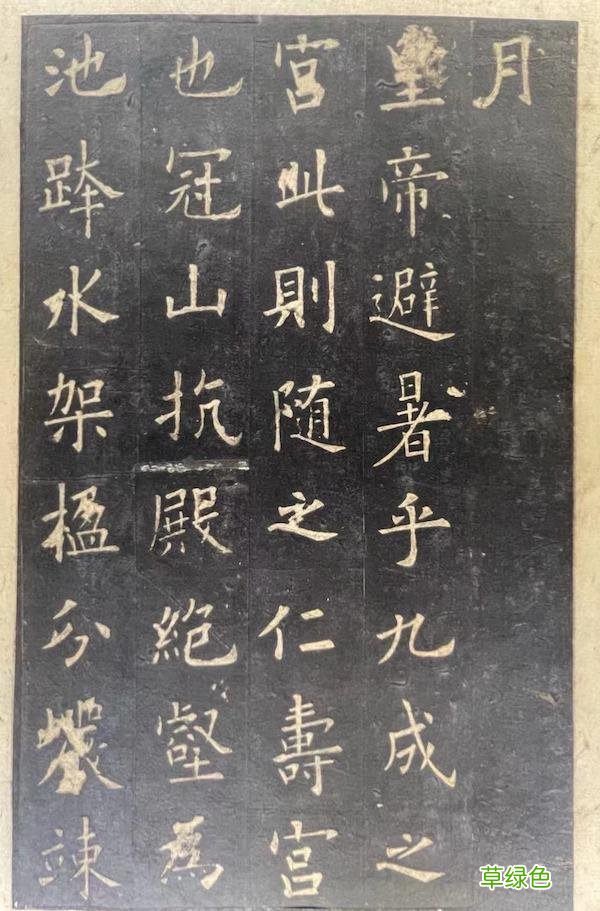 月
皇帝避暑乎九成之
宮此則随之仁壽宮
也冠山抗殿絶壑為
池跨水架楹分巖竦
草绿色